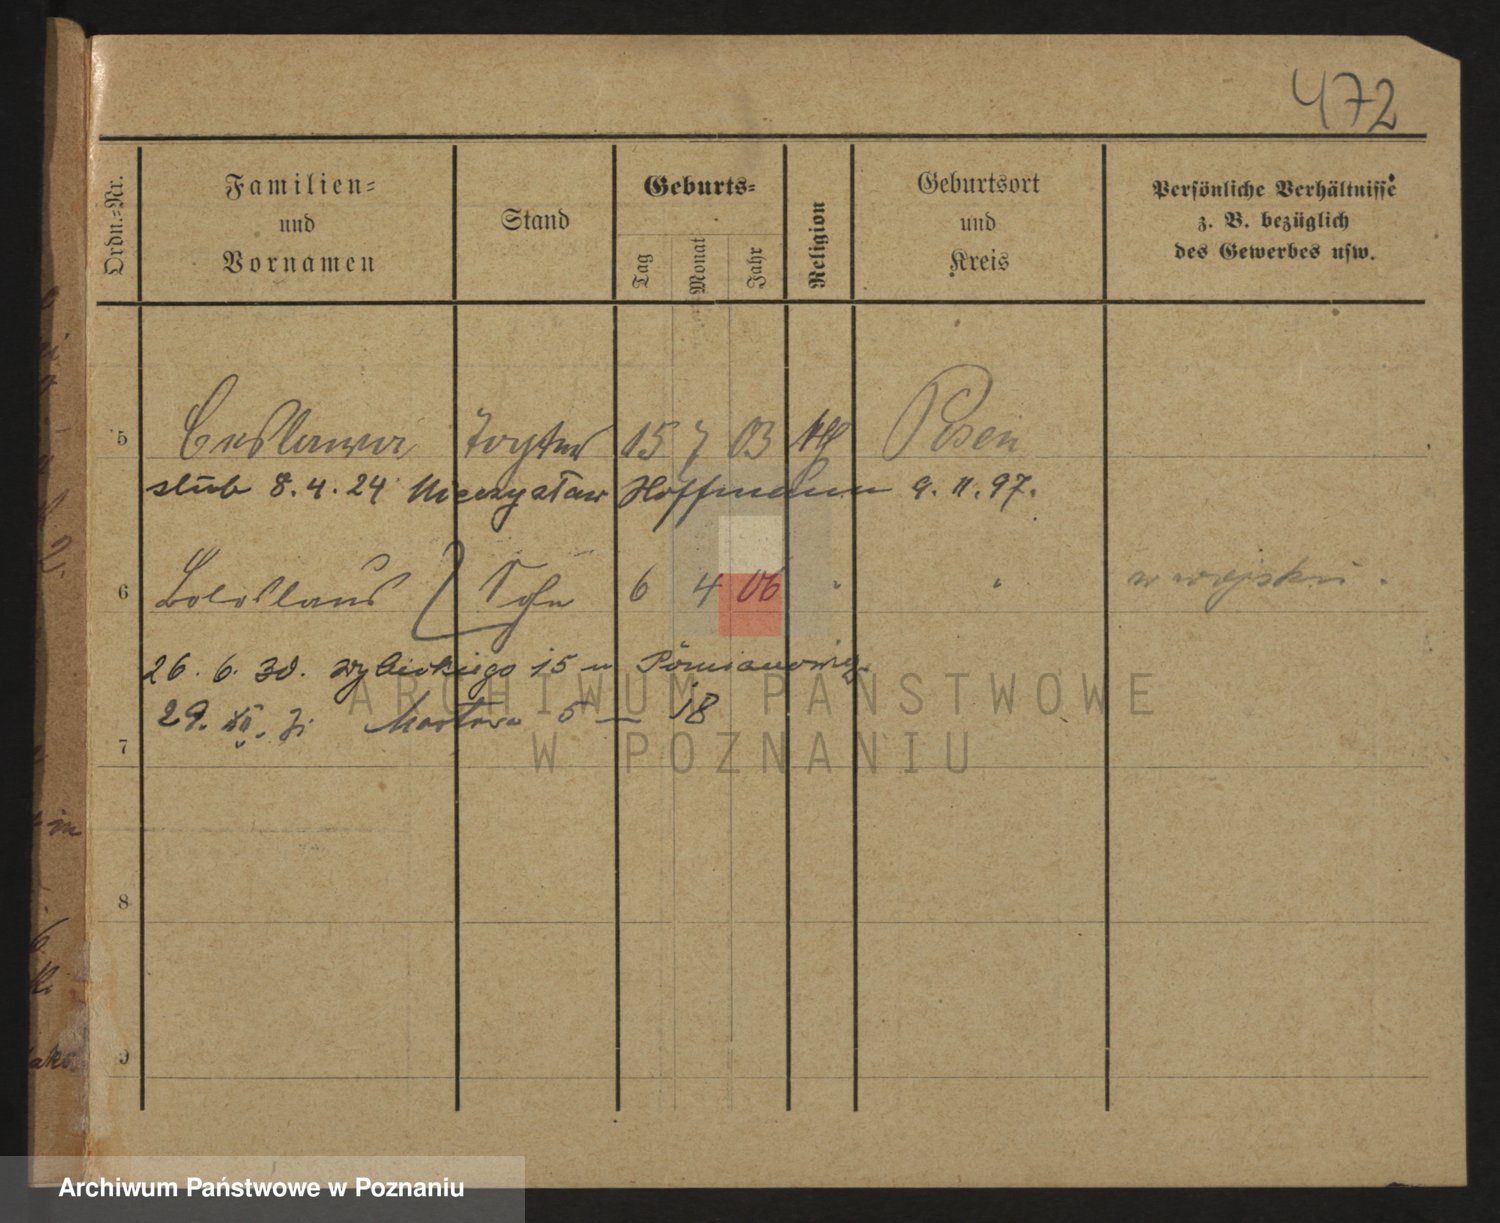 472
Ordn.-Nr.
Familien-
und
Vornamen
Stand
Geburts-
Tag
Monat
Jahr
Religion
Geburtsort
und
Kreis
Persönliche Verhältnisse
z. B. bezüglich
des Gewerbes usw.
5 Ceslawa Tochter 15 7 03 Posen
slub 8.4.24 Mieczysław Hoffmann 9.11.97.
6 Boleslaus Sohn 6 4 06 " " w wojsku.
26. 6. 30. Wybickiego 15
29. XII. 5 — 18
7
8
9
ARCHIWUM PAŃSTWOWE
W POZNANIU
Archiwum Państwowe w Poznaniu